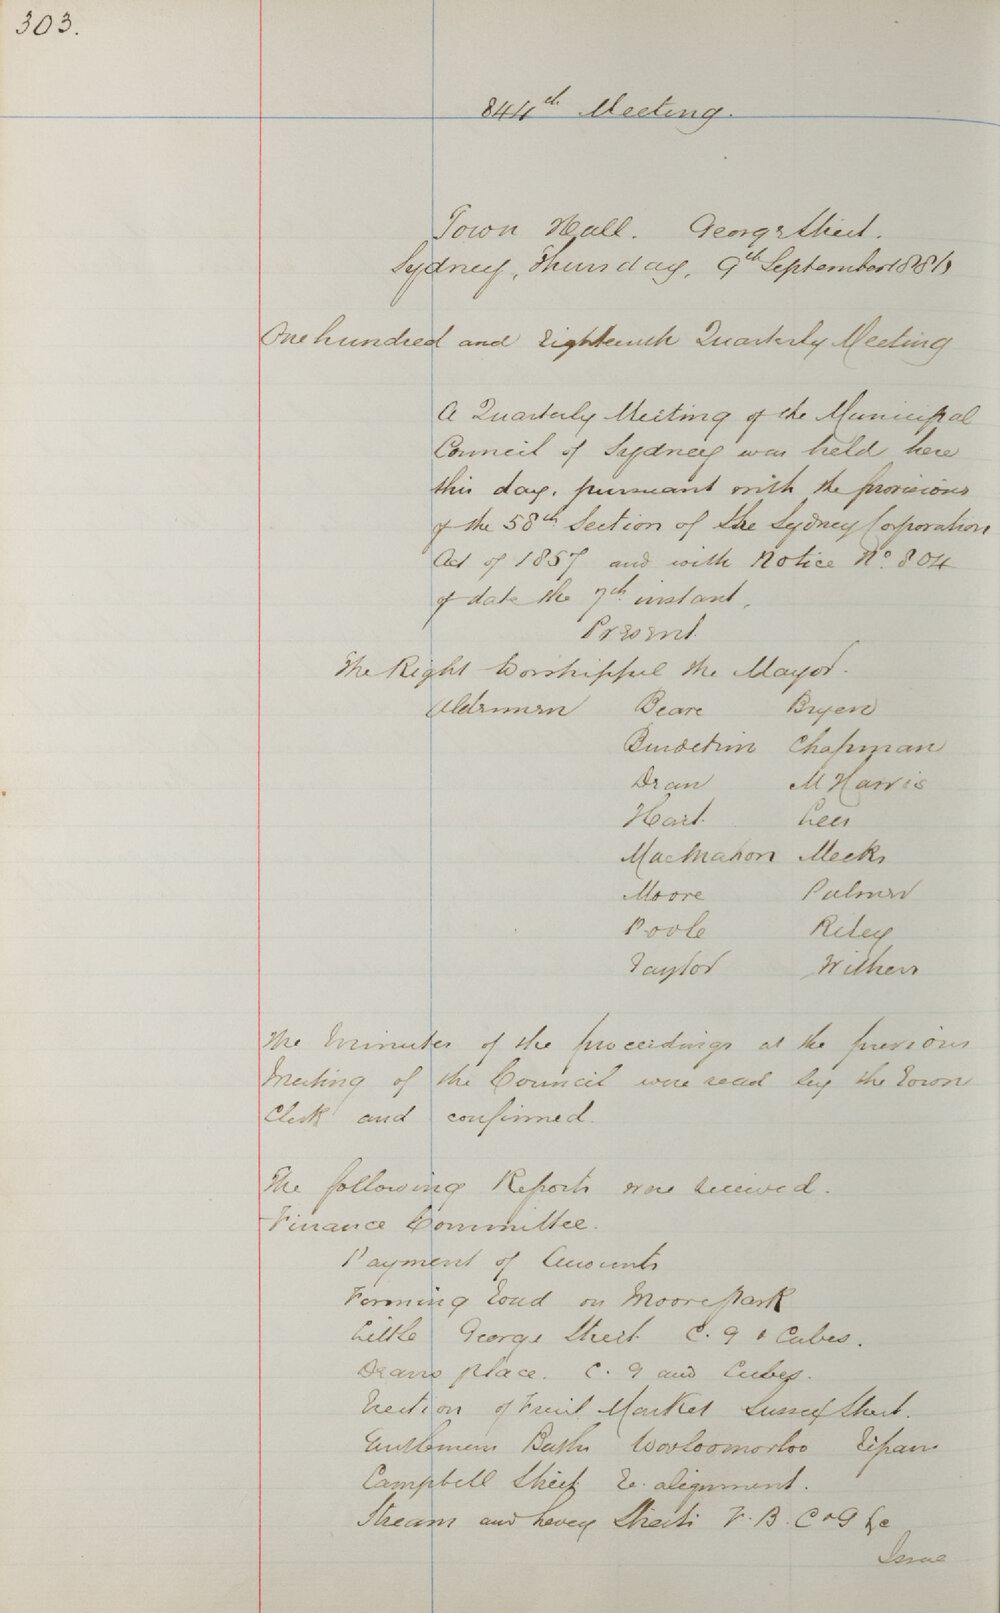 303.
844th Meeting.
Town Hall. George Street.
Sydney, Thursday, 9th September 1886
One hundred and Eighteenth Quarterly Meeting
A Quarterly Meeting of the Municipal
Council of Sydney was held here
this day, pursuant with the provisions
of the 58th Section of the Sydney Corporation
Act of 1857 and with Notice No. 804
of date the 7th instant,
Present.
The Right Worshipful the Mayor.
Aldermen Beare Bryen
Burdekin Chapman
Dean M Harris
Hart. Lees
MacMahon Meeks
Moore Palmer
Poole Riley
Taylor Withers
The Minutes of the proceedings at the previous
Meeting of the Council were read by the Town
Clerk and confirmed.
The following Reports were received.
Finance Committee.
Payment of Amounts
Forming Road on Moore Park
Little George Street C. G & Cubes.
Deans place. C. G and Cubes.
Erection of Fruit Market Sussex Street.
Gentlemens Baths Woolloomooloo Repairs
Campbell Street Re-alignment.
and Levey Streets F. B. C & G &c